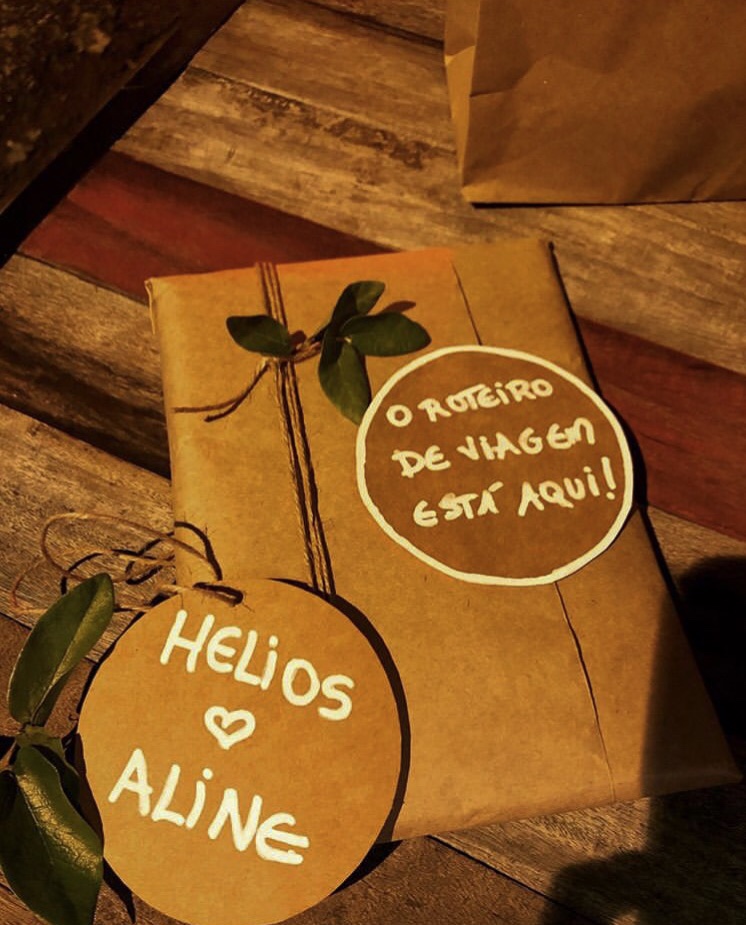 O ROTEIRO
DE VIAGEM
ESTÁ AQUI!
HELIOS
♡
ALINE